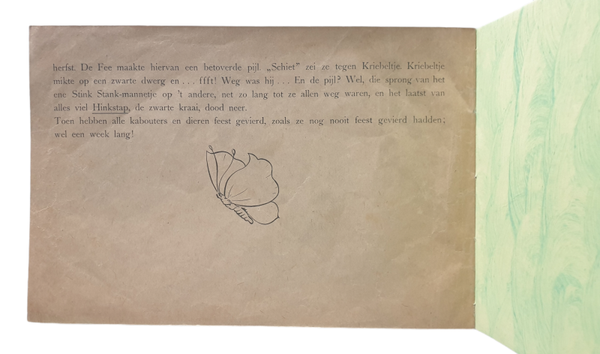 herfst. De Fee maakte hiervan een betoverde pijl. „Schiet” zei ze tegen Kriebeltje. Kriebeltje
mikte op een zwarte dwerg en . . . ffft! Weg was hij . . . En de pijl? Wel, die sprong van het
ene Stink Stank-mannetje op 't andere, net zo lang tot ze allen weg waren, en het laatst van
alles viel Hinkstap, de zwarte kraai, dood neer.
Toen hebben alle kabouters en dieren feest gevierd, zoals ze nog nooit feest gevierd hadden;
wel een week lang!